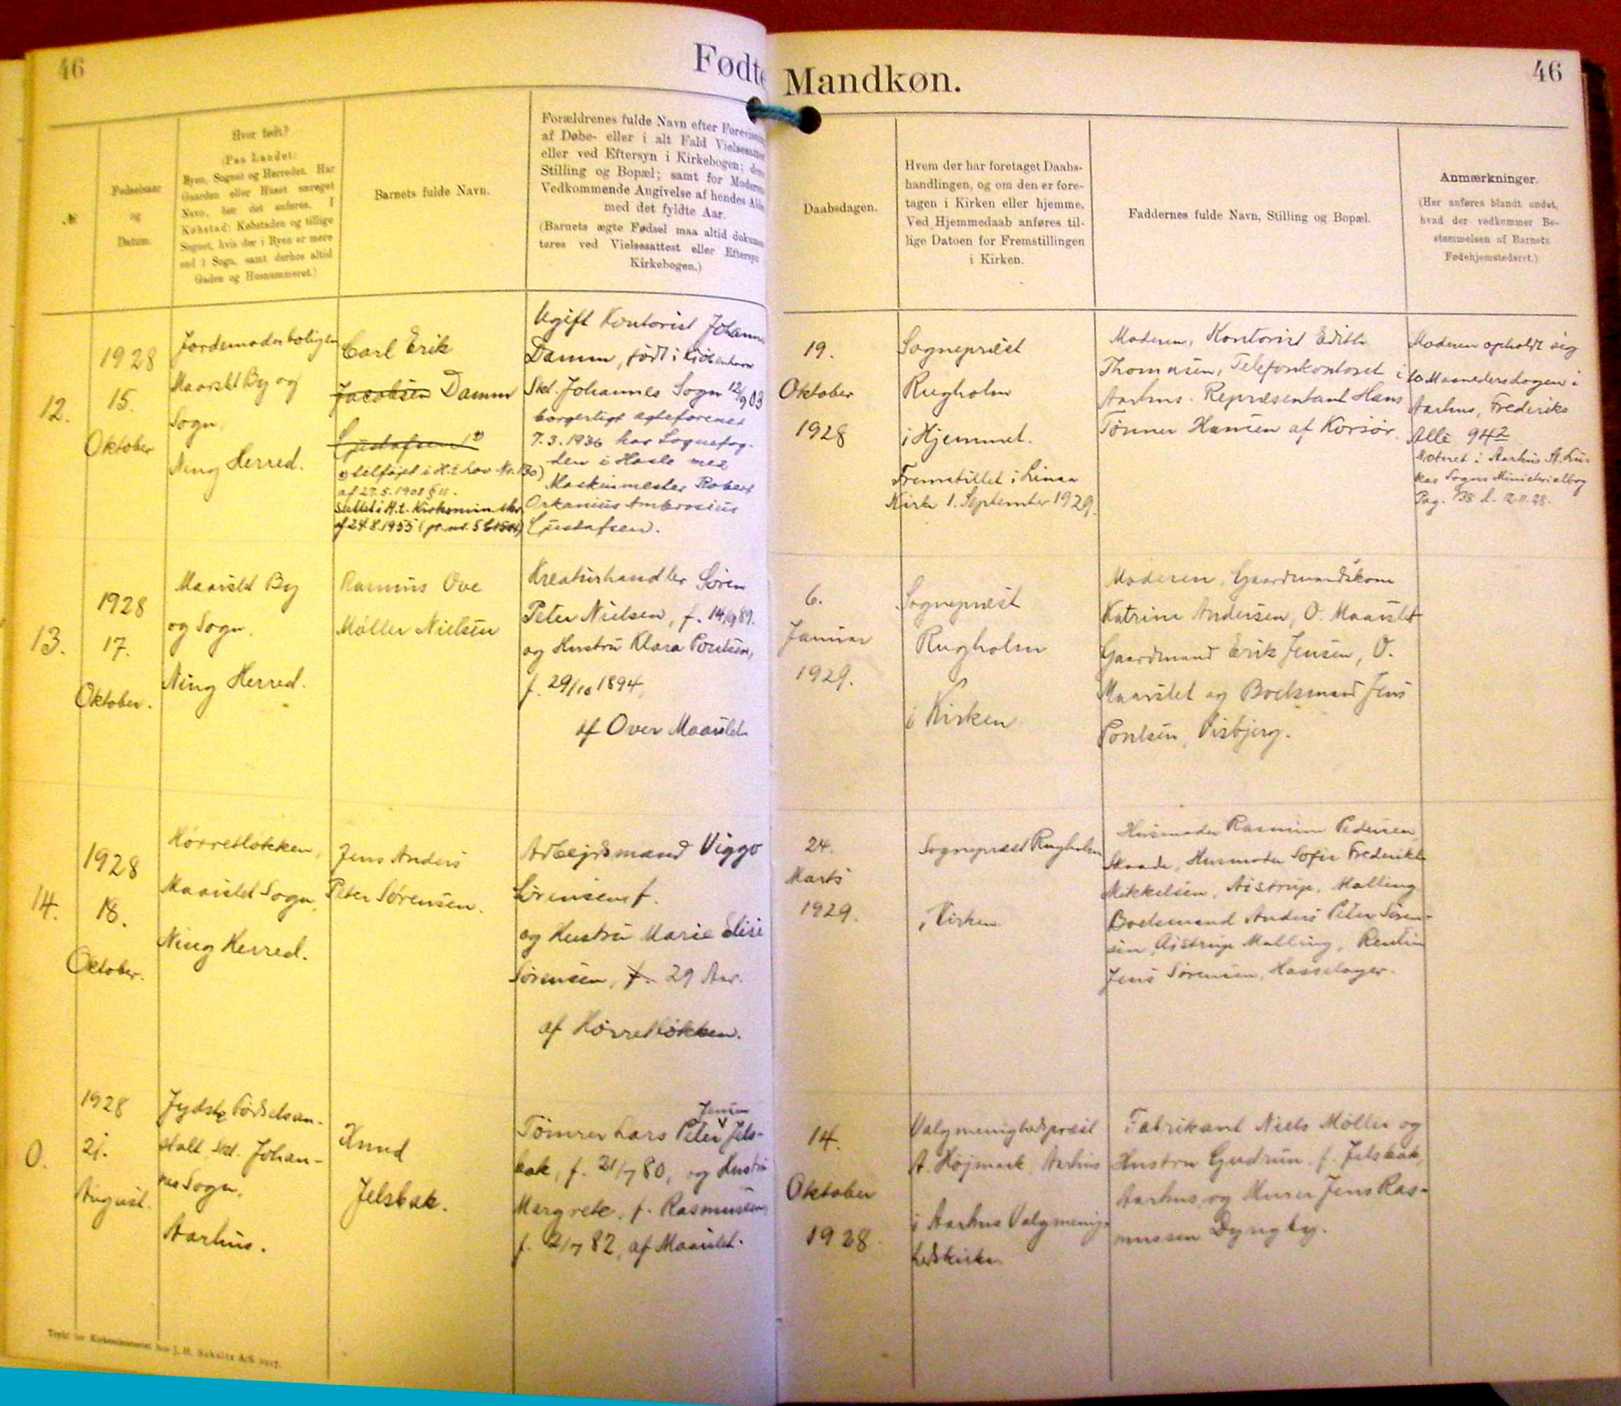 46
Fødte
Mandkøn.
46
№
Fødselsaar
og
Datum.
Hvor født?
(Paa Landet:
Byen, Sognet og Herredet. Har
Gaarden eller Huset særeget
Navn, bør det anføres. I
Købstad: Købstaden og tillige
Sognet, hvis der i Byen er mere
end 1 Sogn, samt derhos altid
Gaden og Husnummeret.)
Barnets fulde Navn.
Forældrenes fulde Navn efter
af Døbe- eller i alt Fald
eller ved Eftersyn i Kirkebogen;
Stilling og Bopæl; samt for Moderens
Vedkommende Angivelse af hendes
med det fyldte Aar.
(Barnets ægte Fødsel maa altid
teres ved Vielsesattest eller Eftersyn
Kirkebogen.)
Daabsdagen.
Hvem der har foretaget Daabs-
handlingen, og om den er fore-
tagen i Kirken eller hjemme.
Ved Hjemmedaab anføres til-
lige Datoen for Fremstillingen
i Kirken.
Faddernes fulde Navn, Stilling og Bopæl.
Anmærkninger.
(Her anføres blandt andet,
hvad der vedkommer Be-
stemmelsen af Barnets
Fødehjemstedsret.)
12.
1928
15.
Oktober
Jordemoderboligen
Maarslet By og
Sogn,
Ning Herred.
Carl Erik
Jacobsen Damm
Gustafsen
af 27.5.1908 § 11.
Ugift Kontorist Johanne
Damm, født i København
Skt. Johannes Sogn 12/9 03
borgerligt ægteforenet
7.3.1936 hos Sognefog-
den i Hasle med
Maskinmester Robert
Orkanius Ambrosius
Gustafsen.
19.
Oktober
1928
Sognepræst
Rugholm
i Hjemmet.
Fremstillet i
Kirke 1. September 1929.
Moderen, Kontorist Edith
Thomasen, Telefonkontoret i
Aarhus. Repræsentant Hans
Tønner Hansen af Korsør.
Moderen opholdt sig
10 Maanedersdagen i
Aarhus, Frederiks
Allé 94
Noteret i Aarhus St. Lu-
kas Sogns Ministerialbog
13.
1928
17.
Oktober.
Maarslet By
og Sogn.
Ning Herred.
Rasmus Ove
Møller Nielsen
Kreaturhandler Søren
Peter Nielsen, f. 14/9 89.
og Hustru Klara Poulsen,
f. 29/10 1894,
af Over Maarslet
6.
Januar
1929.
Sognepræst
Rugholm
i Kirken
Moderen, Gaardmandskone
Katrine Andersen, O. Maarslet
Gaardmand Erik Jensen, O.
Maarslet og Boelsmand Jens
Poulsen, Visbjerg.
14.
1928
18.
Oktober.
Hørretløkken,
Maarslet Sogn,
Ning Herred.
Jens Anders
Peter Sørensen.
Arbejdsmand Viggo
Sørensen f.
og Hustru Marie Elise
Sørensen, f. 29 Aar.
af Hørretløkken.
24.
Marts
1929.
Sognepræst Rugholm
i Kirken
Husmoder Rasmine Pedersen
Skaade, Husmoder Sofie Frederikke
Mikkelsen, Ajstrup, Malling
Boelsmand Anders Peter Søren-
sen Ajstrup Malling, Rentier
Jens Sørensen, Hasselager.
0.
1928
21.
August.
Jydske Fødselsan-
stalt Skt. Johan-
nes Sogn,
Aarhus.
Knud
Jelsbak.
Jensen
Tømrer Lars Peter Jels-
bak, f. 21/7 80, og Hustru
Margrete, f. Rasmussen,
f. 2/7 82, af Maarslet.
14.
Oktober
1928.
Valgmenighedspræst
A. Højmark, Aarhus
i Aarhus Valgmenig-
hedskirke
Fabrikant Niels Møller og
Hustru Gudrun f. Jelsbak,
Aarhus, og Murer Jens Ras-
mussen Dyngby.
Trykt for Kirkeministeriet hos J. H. Schultz A/S 1927.